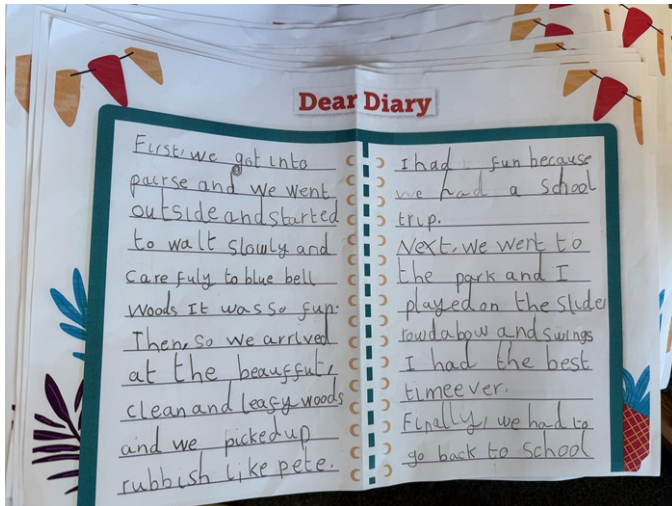 Dear Diary
First, we got into
pairse and we went
outside and started
to walt slowly and
care fuly to blue bell
woods It was so fun.
Then, so we arrived
at the beauffut,
clean and leafy woods
and we picked up
rubbish like pete.
I had fun because
we had a School
trip.
Next, we went to
the park and I
played on the slide
rowdabow and swings
I had the best
time ever.
Finally, we had to
go back to School